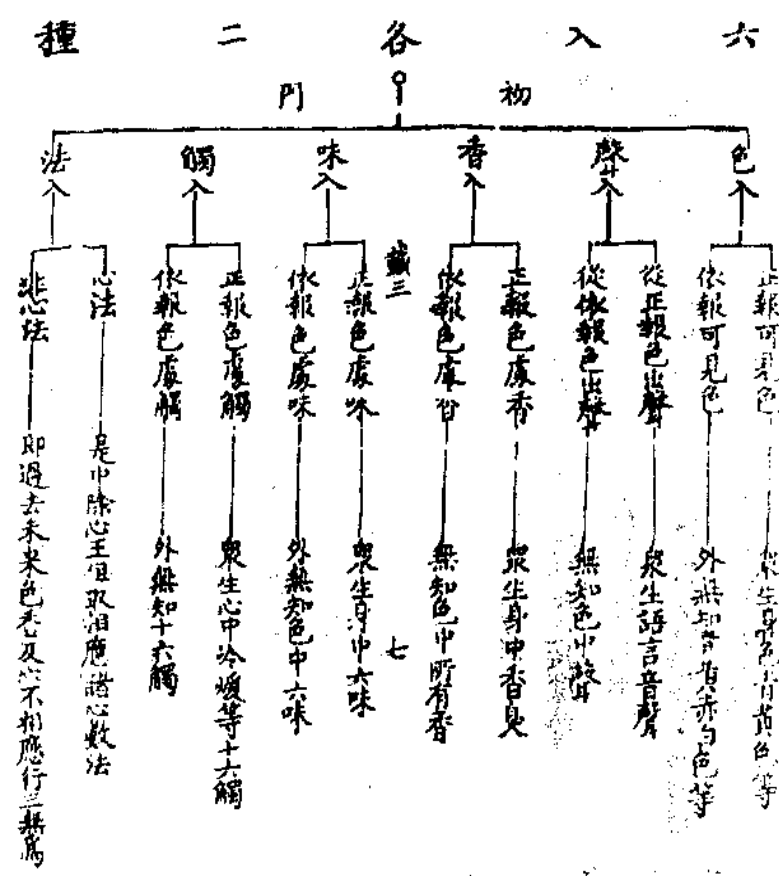 六入各二種
初門
色入
正報可見色
眾生身色青黃色等
依報可見色
外無知青黃赤白色等
聲入
從正報色出聲
眾生語言音聲
從依報色出聲
無知色中聲
香入
正報色處香
眾生身中香臭
依報色處香
無知色中所有香
藏三
七
味入
正報色處味
眾生身中六味
依報色處味
外無知色中六味
觸入
正報色處觸
眾生心中冷煖等十六觸
依報色處觸
外無知十六觸
法入
心法
是中除心王但取相應諸心數法
非心法
即過去未來色法及心不相應行三無為